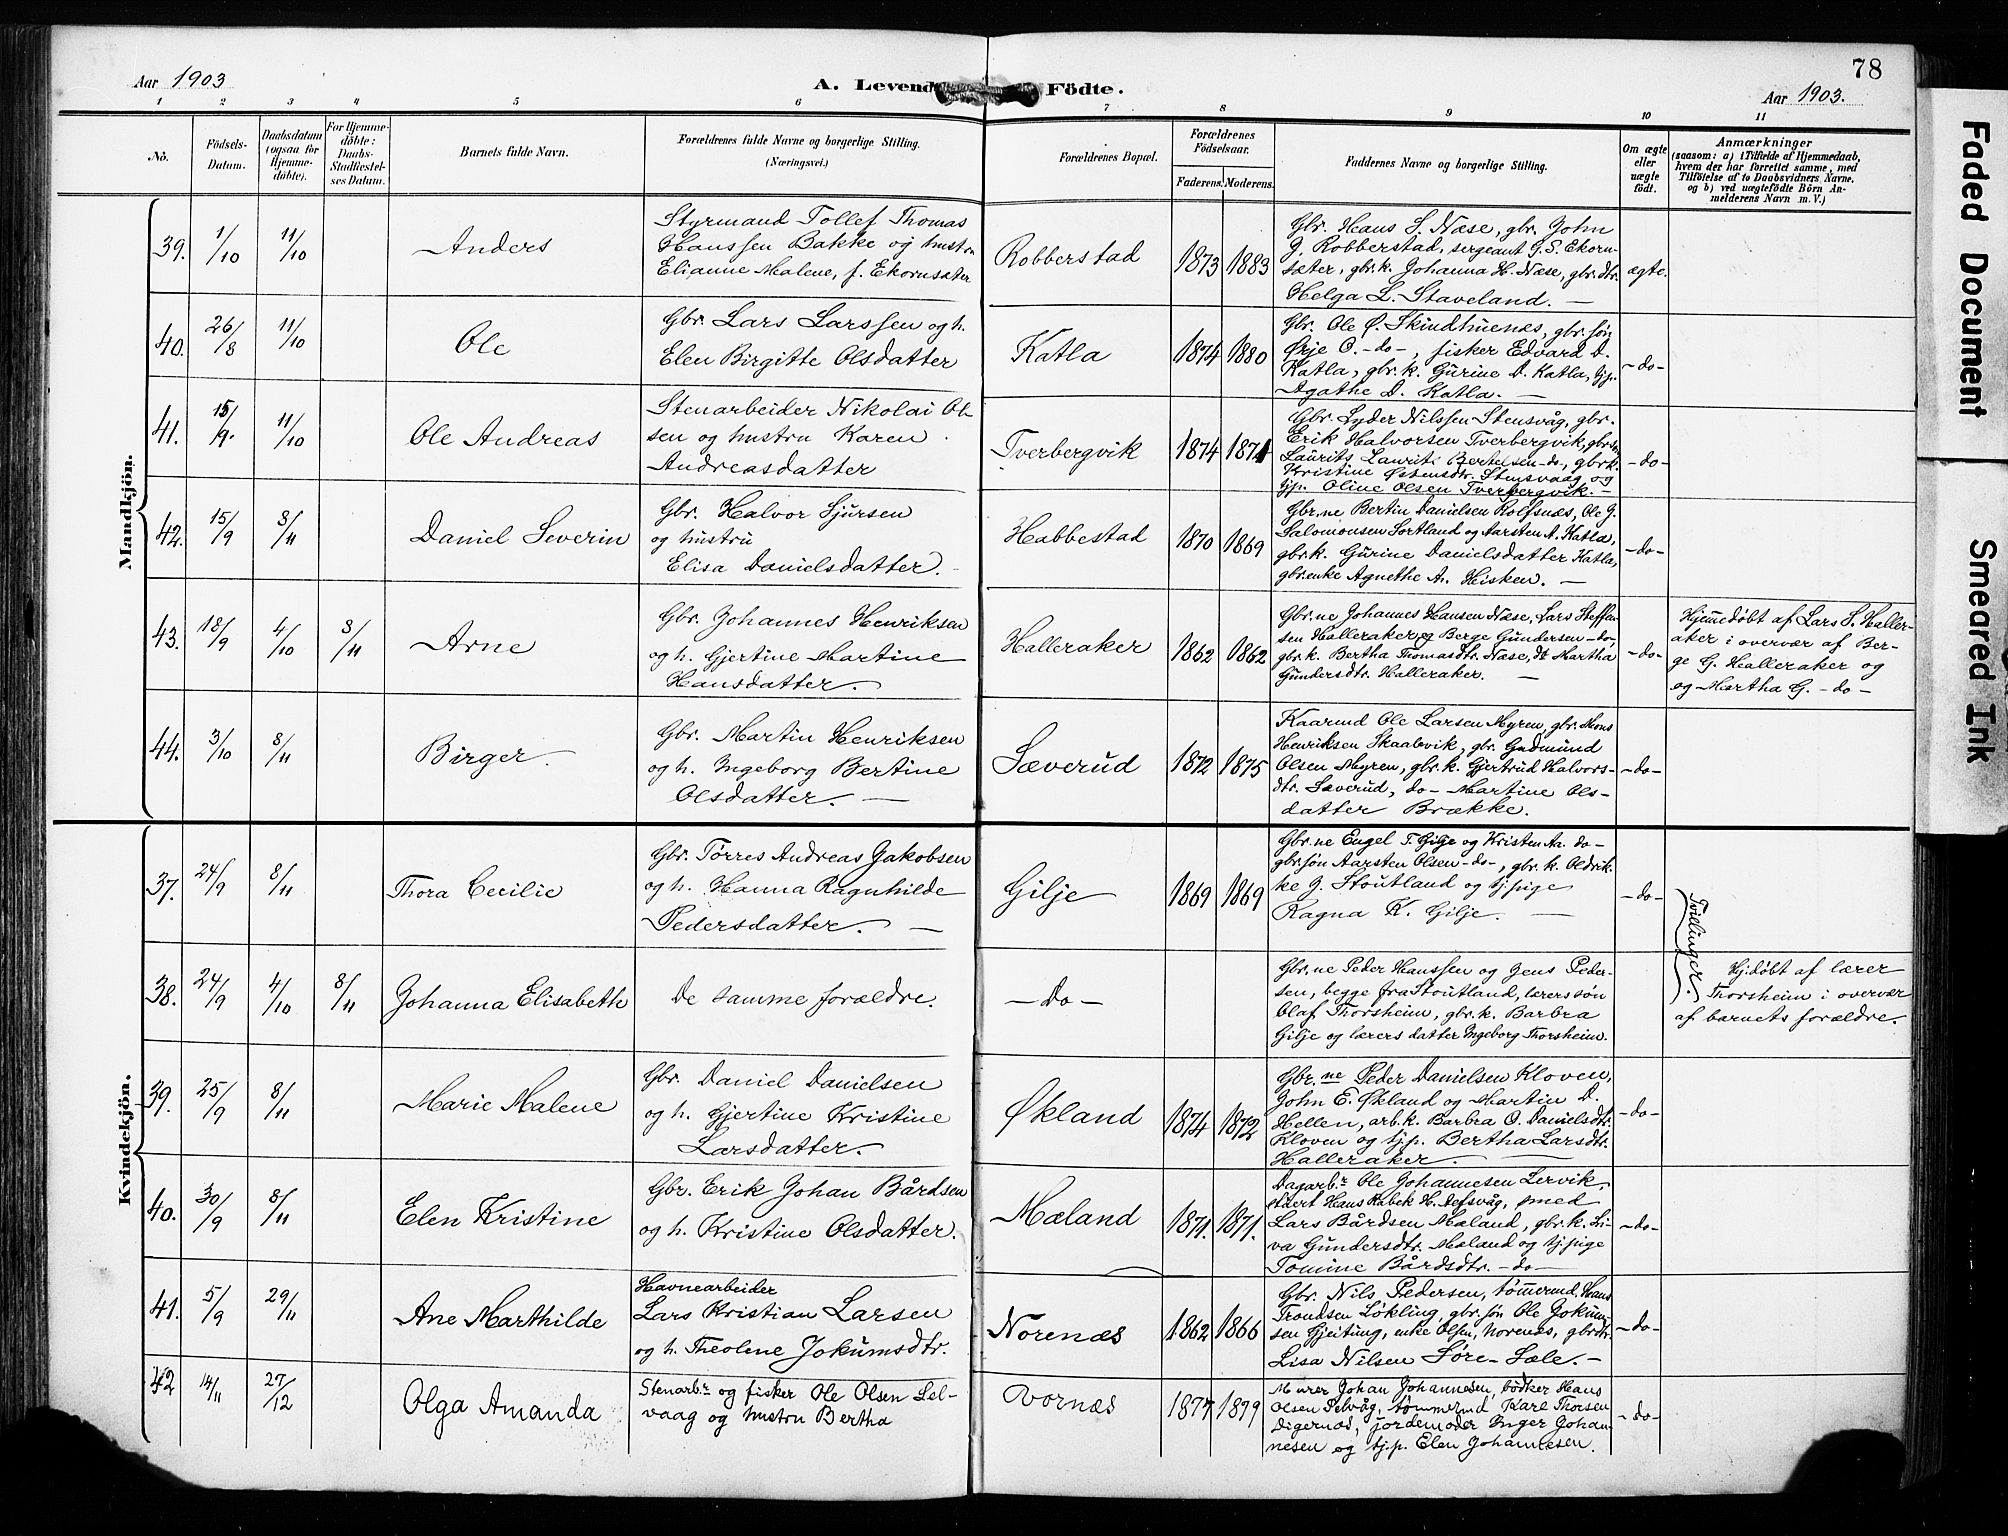 78
Aar 1903
A. Levende Födte.
Aar 1903.
1 2 3 4 5 6 7 8 9 10 11
No.
Födsels-
Datum.
Daabsdatum
(ogsaa for
Hjemme-
döbte).
For Hjemme-
döbte:
Daabs-
Stadfæstel-
ses Datum.
Barnets fulde Navn.
Forældrenes fulde Navne og borgerlige Stilling.
(Næringsvei.)
Forældrenes Bopæl.
Forældrenes
Födselsaar.
Faderens. Moderens.
Faddernes Navne og borgerlige Stilling.
Om ægte
eller
uægte
födt.
Anmærkninger
(saasom: a) i Tilfælde af Hjemmedaab,
hvem der har forrettet samme, med
Tilföielse af to Daabsvidners Navne.
og b) ved uægtefödte Börn An-
melderens Navn m. V.)
Mandkjön.
39. 1/10 11/10 Anders
Styrmand Tollef Thomas
Hanssen Bakke og hustru
Elianne Malene, f. Ekornsæter
Robberstad 1873 1883
Gbr. Hans S. Næse, gbr. John
G. Robberstad, sergeant G. S. Ekorn-
sæter, gbr.k. Johanna H. Næse, gbr. dtr.
Helga L. Staveland. —
ægte.
40. 26/8 11/10 Ole
Gbr. Lars Larssen og h.
Elen Birgitte Olsdatter
Katla 1874 1880
Gbr. Ole Ø. Skindhuenæs, gbr. søn
Ørje O. -do-, fisker Edvard D.
Katla, gbr.k. Gurine D. Katla, tjp.
Agathe D. Katla. —
-do-
41. 15/9. 11/10 Ole Andreas
Stenarbeider Nikolai Ol-
sen og hustru Karen
Andreasdatter
Tverbergvik 1874 1871
Gbr. Syder Nilssen Stensvåg, gbr.
Erik Halvorsen Tverbergvik, gbr.søn
Laurits Laurits Bertelsen -do-, gbr.k.
Kristine Østensdtr. Stensvaag og
tjp. Oline Olsen Tverbergvik. —
-do-
42. 15/9 8/11 Daniel Severin
Gbr. Halvor Sjursen
og hustru
Elisa Danielsdatter.
Habbestad 1870 1869
Gbr.ne Bertin Danielsen Rolfsnæs, Ole G.
Salomonsen Sortland og Aarsten A. Katla,
gbr.k. Gurine Danielsdatter Katla,
gbr.enke Agnethe A. Hisken. —
-do-
43. 18/9 4/10 8/11 Arne
Gbr. Johannes Henriksen
og h. Gjertine Martine
Hansdatter.
Halleraker 1862 1862
Gbr.ne Johannes Hansen Næse, Lars Steffen-
sen Halleraker og Berge Gundersen -do-
gbr.k. Bertha Thomasdtr. Næse, dt Martha
Gundersdtr. Halleraker. —
-do-
Hjemmedøbt af Lars S. Haller-
aker i overvær af Ber-
ge G. Halleraker og
og Martha G. -do-
44. 3/10 8/11 Birger.
Gbr. Martin Henriksen
og h. Ingeborg Bertine
Olsdatter. —
Sæverud 1872 1875
Kaarmd Ole Larsen Myren, gbr. Mons
Henriksen Skaalevik, gbr. Gudmund
Olsen Myren, gbr.k. Gjertrud Halvors-
dtr. Sæverud, do- Martine Ols-
datter Brække.
-do-
Kvindekjön.
37. 24/9 8/11 Thora Cecilie
Gbr. Tørres Andreas Jakobsen
og h. Hanna Ragnhilde
Pedersdatter. —
Gilje 1869 1869
Gbr.ne Engel T. Gilje og Kristen Aa. do-
gbr.søn Aarsten Olsen -do-, gbr.k. Oldrik-
ke J. Stoutland og tj.pige
Ragna K. Gilje. —
-do-
Tvillinger.
38. 24/9 4/10 8/11 Johanna Elisabeth
De samme forældre.
-Do-
Gbr.ne Peder Hanssen og Jens Peder-
sen, begge fra Stoutland, lærers søn
Olaf Thorsheim, gbr.k. Barbra
Gilje og lærers datter Ingeborg Thorsheim.
Hj.døbt af lærer
Thorsheim i overvær
af barnets forældre.
39. 25/9 8/11 Marie Malene
Gbr. Daniel Danielsen
og h. Gjertine Kristine
Larsdatter.
Økland 1874 1872
Gbr.ne Peder Danielsen Kloven,
John E. Økland og Martin D.
Hellen, arb.k. Barbra O. Danielsdtr.
Kloven og tj.p. Bertha Larsdtr.
Halleraker. —
-do-
40. 30/9 8/11 Elen Kristine
Gbr. Erik Johan Bårdsen
og h. Kristine Olsdatter.
Mæland 1871. 1871.
Dagarbr Ole Johannesen Lervik,
Hans Rabek H. smed
Lars Bårdsen Mæland, gbr.k. Li-
va Gundersdtr. Mæland og tj.pige
Tomine Bårdsdtr. -do-
-do-
41. 5/9 29/11 Ane Marthilde
Havnearbeider
Lars Kristian Larsen
og h. Theolene Jokumsdtr.
Norenæs 1862 1866
Gbr. Nils Pedersen, tømmermd. Hans
Trondsen Løkling, gbr. søn Ole Jokum-
sen Gjeitung, enke Olsen, Norenæs, gbr.dtr.
Lisa Nilsen Søre-Sæle. —
-do-
42 14/11 27/12 Olga Amanda
Stenarbr og fisker Ole Olsen Sel-
vaag og hustru Bertha
Vornæs 1877 1879
Murer Johan Johannesen, bødker Hans
Olsen Selvåg, tømmermd Karl Thorsen
Digernæs, jordemoder Inger Johan-
nesen og tj.p. Elen Johannesen.
-do-
Faded Document
Smeared Ink